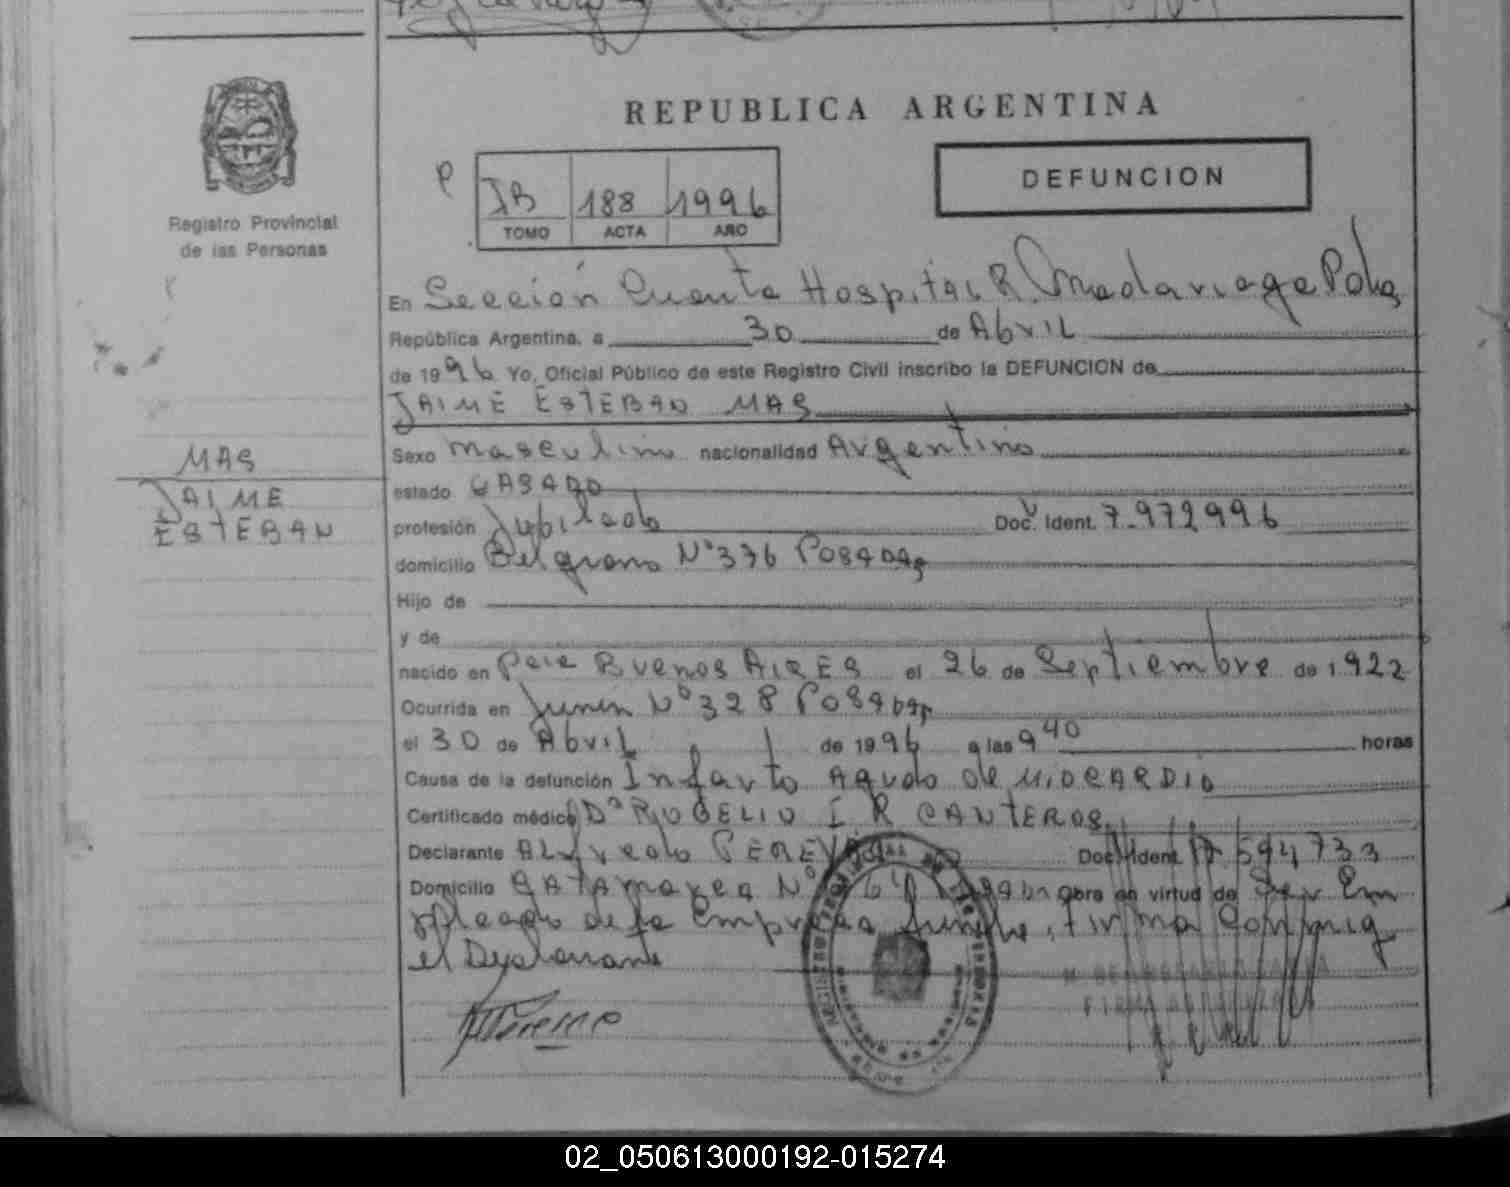 REPUBLICA ARGENTINA
DEFUNCION
IB 188 1996
TOMO ACTA AÑO
Registro Provincial
de las Personas
En Sección Cuenta Hospital R. Madariaga Pdas
República Argentina, a 30 de Abril
de 1996 Yo, Oficial Público de este Registro Civil inscribo la DEFUNCION de
JAIME ESTEBAN MAS
MAS
JAIME
ESTEBAN
Sexo masculino nacionalidad Argentino
estado CASADO
profesión Jubilado Doc. Ident. 7.972996
domicilio Belgrano Nº 376 Posadas
Hijo de
y de
nacido en Pcia Buenos AIRES el 26 de Septiembre de 1.922
Ocurrida en Junin Nº 328 Posadas
el 30 de Abril de 1996 a las 9 40 horas
Causa de la defunción Infarto Agudo de MIOCARDIO
Certificado médico Dº ROGELIO I R CANTEROS
Declarante Alfredo PEREYRA Doc. Ident. 17 594733
Domicilio CATAmarca Nº Obra en virtud de Ser Em
pleado de la Empresa Funebre, firma Conmig
el Declarante
02_050613000192-015274